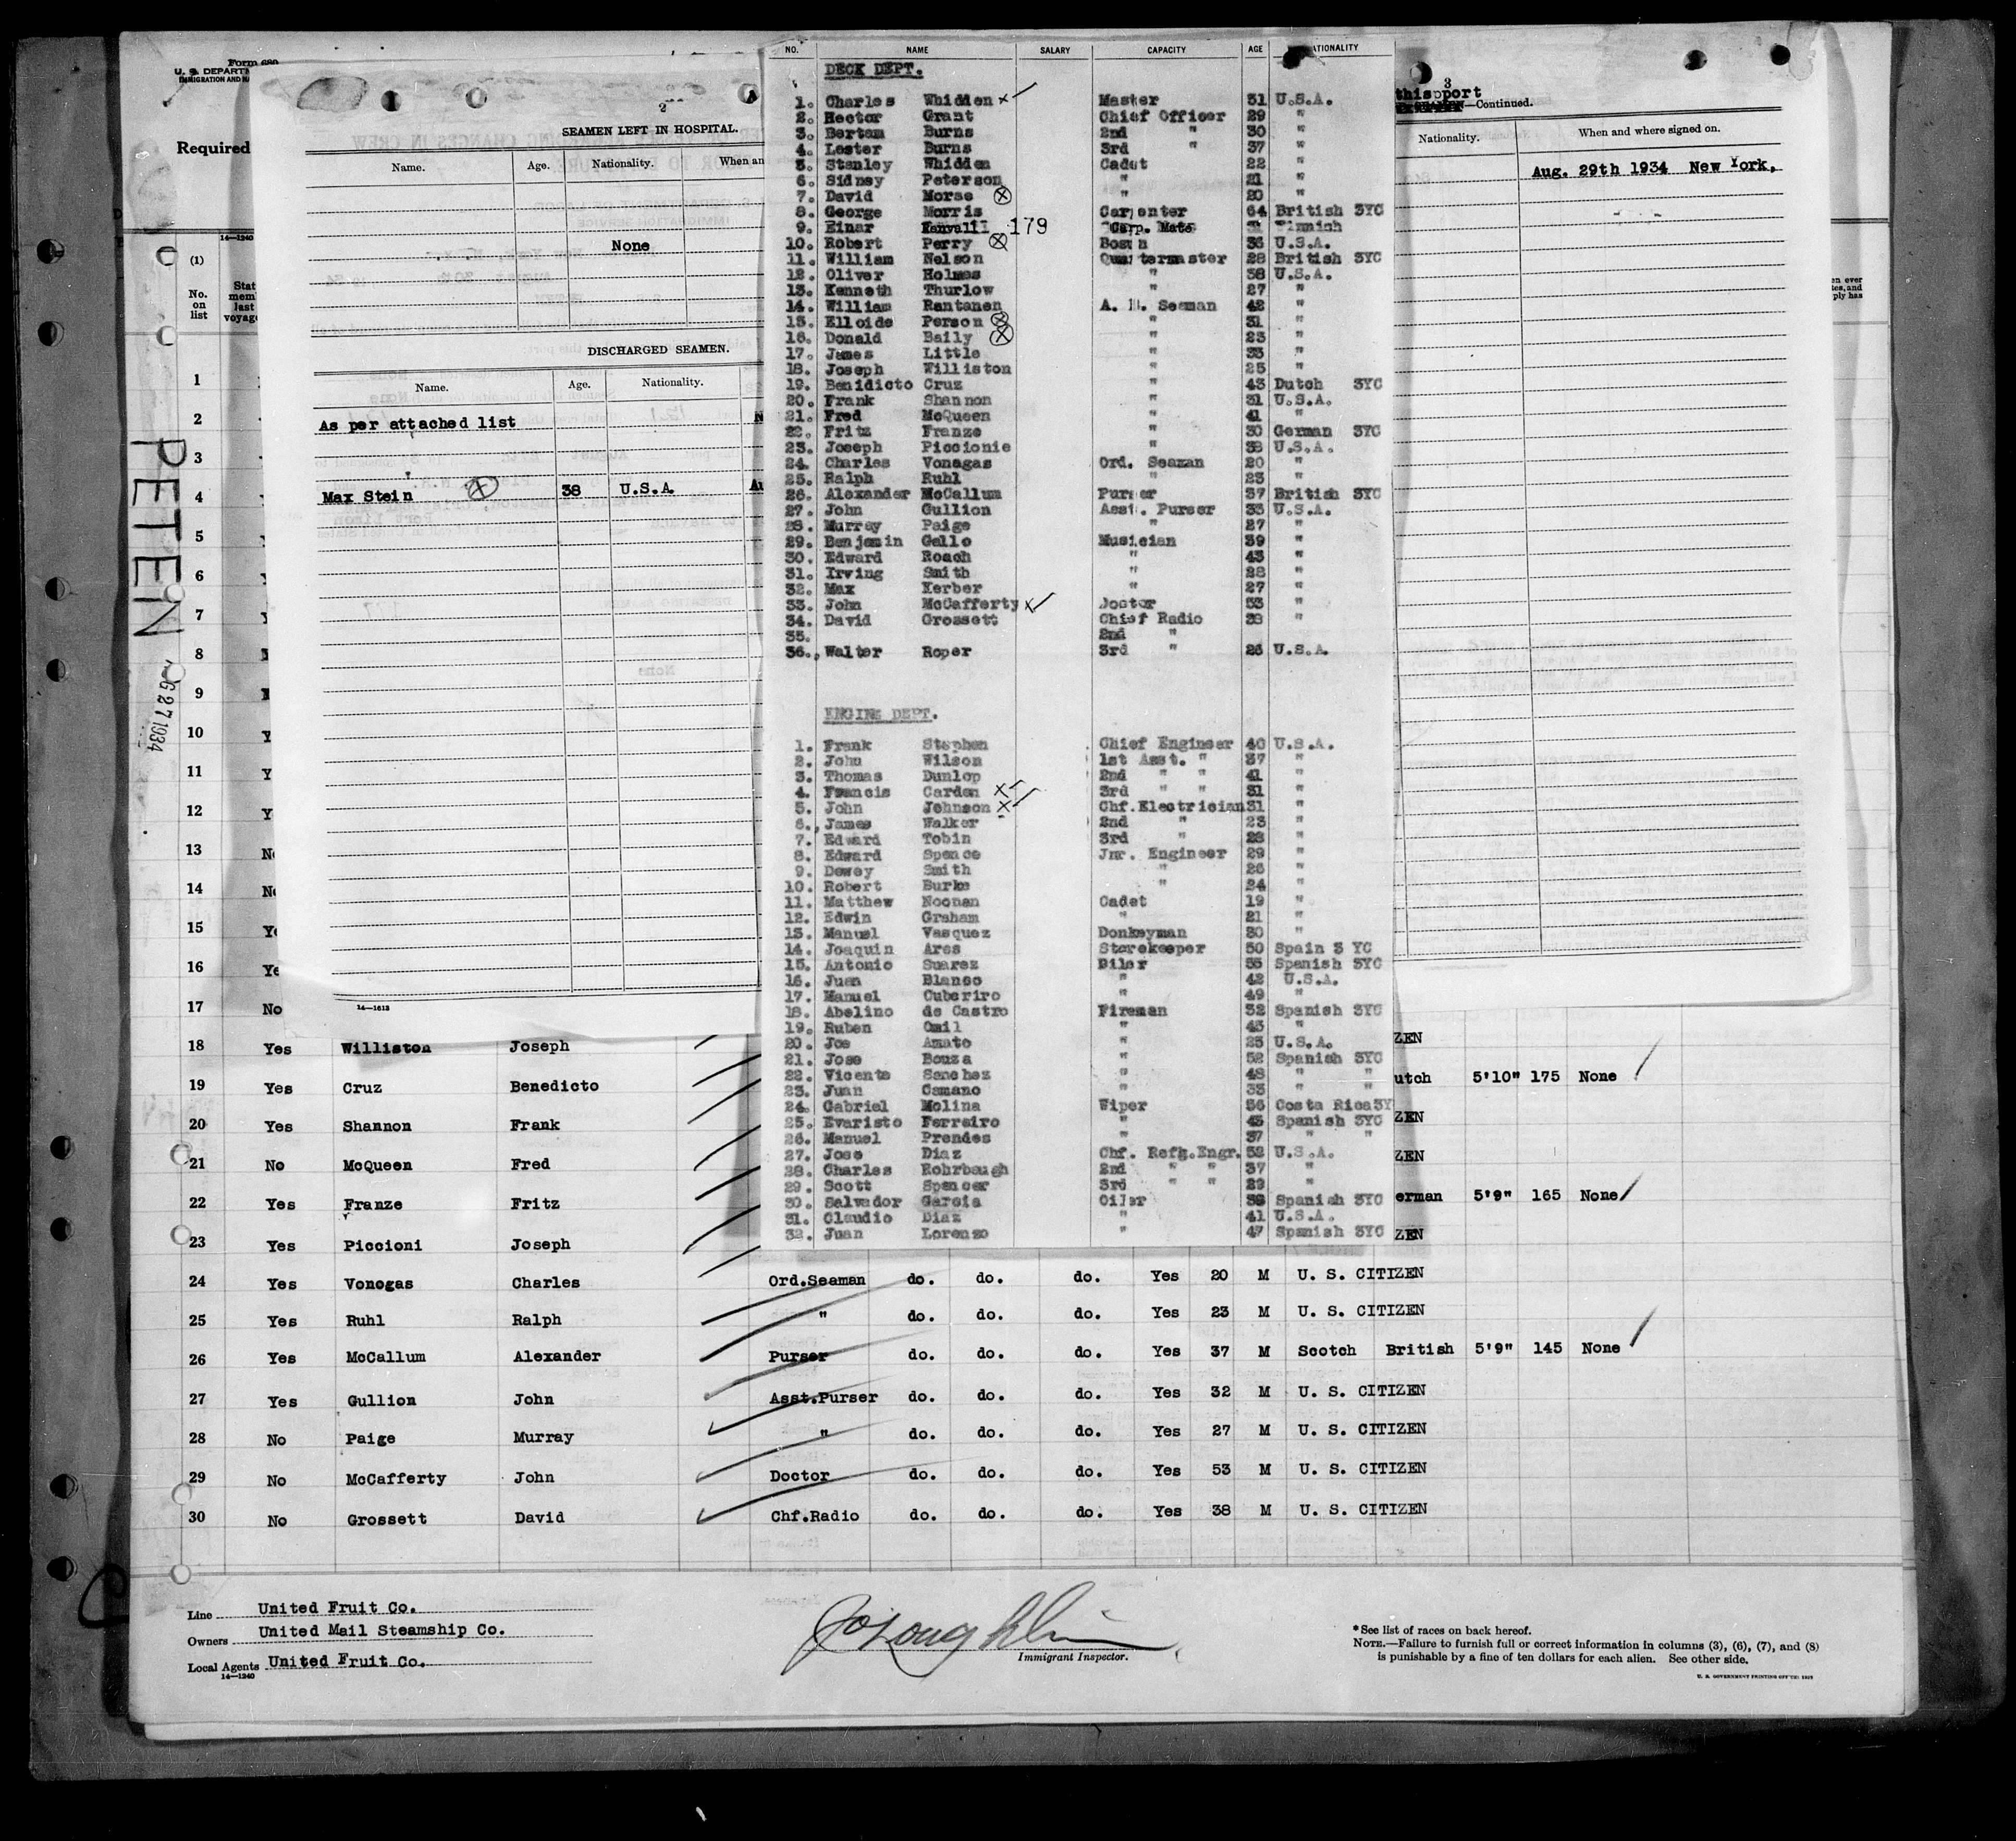 Form 680
U. S. DEPARTM
IMMIGRATION AND NA
Required
14—1240
(1)
No.
on
list
Stat
mem
last
voyage
PETEN
27 1934
1
2
3
4
5
6
7
8
9
10
11
12
13
14
15
16
17 No
2
SEAMEN LEFT IN HOSPITAL.
Name. Age. Nationality. When an
None
DISCHARGED SEAMEN.
Name. Age. Nationality.
As per attached list
Max Stein 38 U.S.A.
14—1613
NO. NAME SALARY CAPACITY AGE NATIONALITY
DECK DEPT.
1. Charles Whidden Master 31 U.S.A.
2. Hector Grant Chief Officer 29 "
3. Bertam Burns 2nd " 30 "
4. Lester Burns 3rd " 37 "
5. Stanley Whidden Cadet 22 "
6. Sidney Peterson " 21 "
7. David Morse " 20 "
8. George Morris Carpenter 64 British 3YC
9. Einar 179 Carp. Mate Finnish
10. Robert Perry Bosun 36 U.S.A.
11. William Nelson Quartermaster 28 British 3YC
12. Oliver Holmes " 38 U.S.A.
13. Kenneth Thurlow " 27 "
14. William Rantanen A. B. Seaman 42 "
15. Elloide Person " 31 "
16. Donald Baily " 23 "
17. James Little " 33 "
18. Joseph Williston " 25 "
19. Benidicto Cruz " 43 Dutch 3YC
20. Frank Shannon " 31 U.S.A.
21. Fred McQueen " 41 "
22. Fritz Franze " 30 German 3YC
23. Joseph Piccionie " 38 U.S.A.
24. Charles Vonagas Ord. Seaman 20 "
25. Ralph Ruhl " 23 "
26. Alexander McCallum Purser 37 British 3YC
27. John Gullion Asst. Purser 33 U.S.A.
28. Murray Paige " 27 "
29. Benjamin Gallo Musician 39 "
30. Edward Roach " 43 "
31. Irving Smith " 28 "
32. Max Kerber " 27 "
33. John McCafferty Doctor 53 "
34. David Grossett Chief Radio 38 "
35. 2nd "
36. Walter Roper 3rd " 26 U.S.A.
ENGINE DEPT.
1. Frank Stephen Chief Engineer 40 U.S.A.
2. John Wilson 1st Asst. " 37 "
3. Thomas Dunlop 2nd " " 41 "
4. Francis Carden 3rd " " 31 "
5. John Johnson Chf. Electrician 31 "
6. James Walker 2nd " 23 "
7. Edward Tobin 3rd " 28 "
8. Edward Spence Jnr. Engineer 29 "
9. Dewey Smith " 26 "
10. Robert Burke " 24 "
11. Matthew Noonan Cadet 19 "
12. Edwin Graham " 21 "
13. Manuel Vasquez Donkeyman 30 "
14. Joaquin Ares Storekeeper 50 Spain 3 YC
15. Antonio Suarez Oiler 35 Spanish 3YC
16. Juan Blanco " 42 U.S.A.
17. Manuel Cuberiro " 49 "
18. Abelino de Castro Fireman 32 Spanish 3YC
19. Ruben Omil " 43 "
20. Joe Amato " 25 U.S.A.
21. Jose Bouza " 52 Spanish 3YC
22. Vicente Sanchez " 48 " "
23. Juan Camano " 33 " "
24. Gabriel Molina Wiper 36 Costa Rica 3Y
25. Evaristo Ferreiro " 43 Spanish 3YC
26. Manuel Prendes " 37 " "
27. Jose Diaz Chf. Refg. Engr. 32 U.S.A.
28. Charles Rohrbaugh 2nd " " 37 "
29. Scott Spencer 3rd " " 29 "
30. Salvador Garcia Oiler 38 Spanish 3YC
31. Claudio Diaz " 41 U.S.A.
32. Juan Lorenzo " 47 Spanish 3YC
3
this port
—Continued.
Nationality. When and where signed on.
Aug. 29th 1934 New York,
18 Yes Williston Joseph ZEN
19 Yes Cruz Benedicto utch 5'10" 175 None
20 Yes Shannon Frank ZEN
21 No McQueen Fred ZEN
22 Yes Franze Fritz erman 5'9" 165 None
23 Yes Piccioni Joseph ZEN
24 Yes Vonogas Charles Ord.Seaman do. do. do. Yes 20 M U. S. CITIZEN
25 Yes Ruhl Ralph " do. do. do. Yes 23 M U. S. CITIZEN
26 Yes McCallum Alexander Purser do. do. do. Yes 37 M Scotch British 5'9" 145 None
27 Yes Gullion John Asst.Purser do. do. do. Yes 32 M U. S. CITIZEN
28 No Paige Murray " do. do. do. Yes 27 M U. S. CITIZEN
29 No McCafferty John Doctor do. do. do. Yes 53 M U. S. CITIZEN
30 No Grossett David Chf.Radio do. do. do. Yes 38 M U. S. CITIZEN
Line United Fruit Co.
Owners United Mail Steamship Co.
Local Agents United Fruit Co.
14—1240
Immigrant Inspector.
*See list of races on back hereof.
NOTE.—Failure to furnish full or correct information in columns (3), (6), (7), and (8)
is punishable by a fine of ten dollars for each alien. See other side.
U. S. GOVERNMENT PRINTING OFFICE: